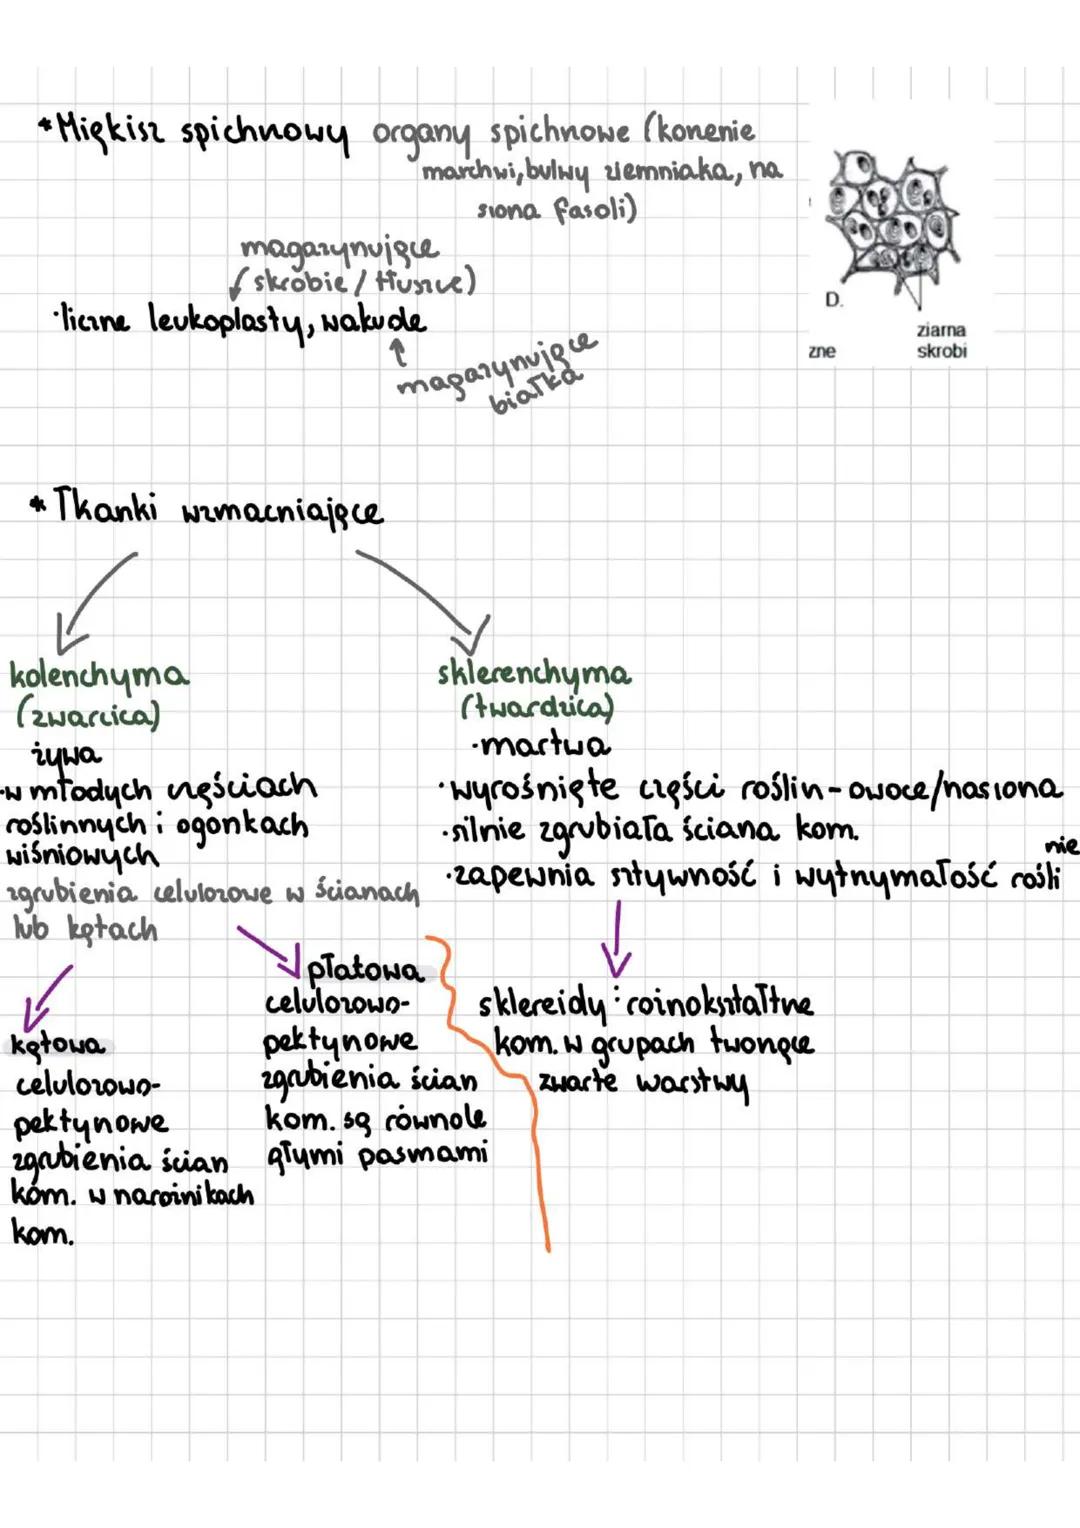 *Miękisz spichnowy organy spichnowe (korzenie
marchwi, bulwy ziemniaka, na
siona fasoli)
magazynujące
(skrobie / tłuszcze)
·liczne leukoplasty, wakuole
magazynujące
białka
D.
ziarna
skrobi
zne
* Tkanki wzmacniające
kolenchyma
(zwarcica)
żywa
·w młodych częściach
roślinnych i ogonkach
wiśniowych
zgrubienia celulozowe w ścianach
lub kątach
sklerenchyma
(twardzica)
·martwa
·wyrośnięte części roślin - owoce/nasiona
·silnie zgrubiała ściana kom.
·zapewnia sztywność i wytrzymałość rośli
nie
kątowa
celulozowo-
pektynowe
zgrubienia ścian
kom. w narożnikach
kom.
płatowa
celulozowo-
pektynowe
zgrubienia ścian
kom. są równole
głymi pasmami
sklereidy: różnokształtne
kom. w grupach tworzące
zwarte warstwy